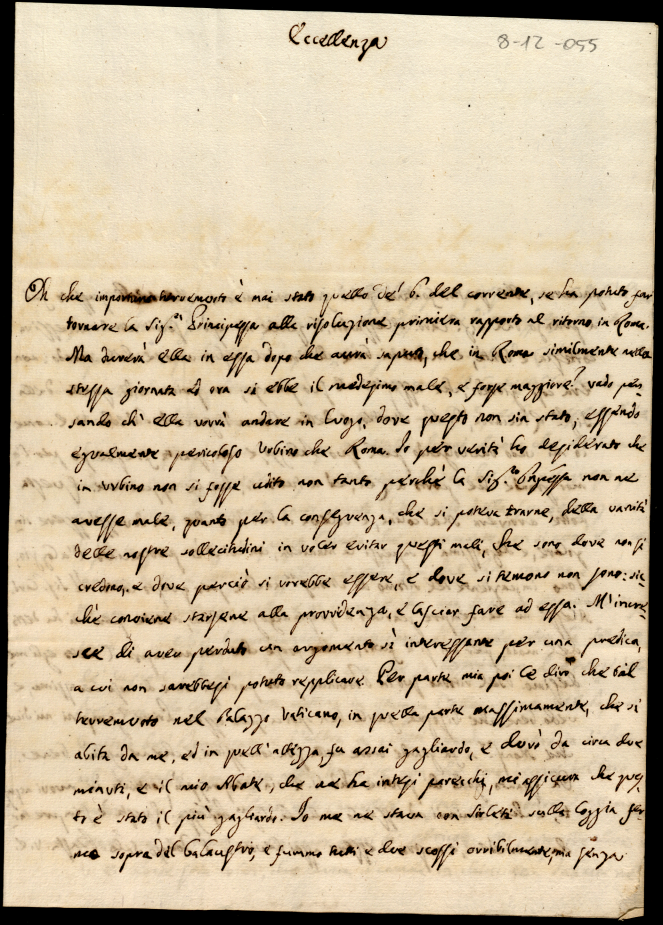 Eccellenza
8-12-055
Oh che importuno terremoto è mai stato quello de' 6. del corrente, se ha potuto far
tornare la Sig.ra Principessa alla risoluzione primiera rapporto al ritorno in Roma.
Ma durerà ella in essa dopo che avrà saputo, che in Roma similmente nella
stessa giornata ed ora si ebbe il medesimo male, e forse maggiore? vado pen-
sando ch' ella vorrà andare in luogo, dove questo non sia stato, essendo
egualmente pericoloso Urbino che Roma. Io per verità ho desiderato che
in Urbino non si fosse udito non tanto perchè la Sig.ra Pnpessa non ne
avesse male, quanto per la conseguenza, che si poteva trarne, della vanità
delle nostre sollecitudini in voler evitar questi mali, che sono dove non si
credono, e dove perciò si vorebbe essere, e dove si temono non sono: sic-
chè conviene starsene alla provvidenza, e lasciar fare ad essa. M'incre-
sce di aver perduto un argomento sì interessante per una predica,
a cui non sarebbesi potuto repplicare. Per parte mia poi le dirò che tal
terremoto nel Palazzo Vaticano, in quella parte massimamente, che si
abita da me, ed in quell' altezza, fu assai gagliardo, e durò da circa due
minuti, e il mio Abate, che ne ha intesi parecchi, mi assicura che ques-
to è stato il più gagliardo. Io me ne stava con Sirleti sulla loggia fer-
mo sopra del balaustro, e fummo tutti e due scossi orribilmente, ma senza